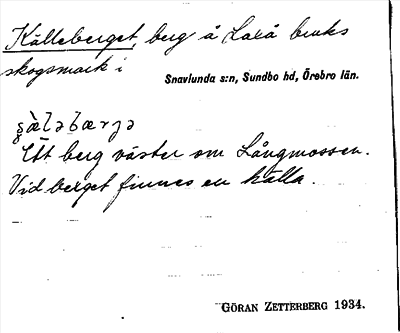 Källeberget, berg å Laxå bruks
skogsmark i Snavlunda s:n, Sundbo hd, Örebro län.
Ett berg väster om Långmossen.
Vid berget finnes en källa.
GÖRAN ZETTERBERG 1934.